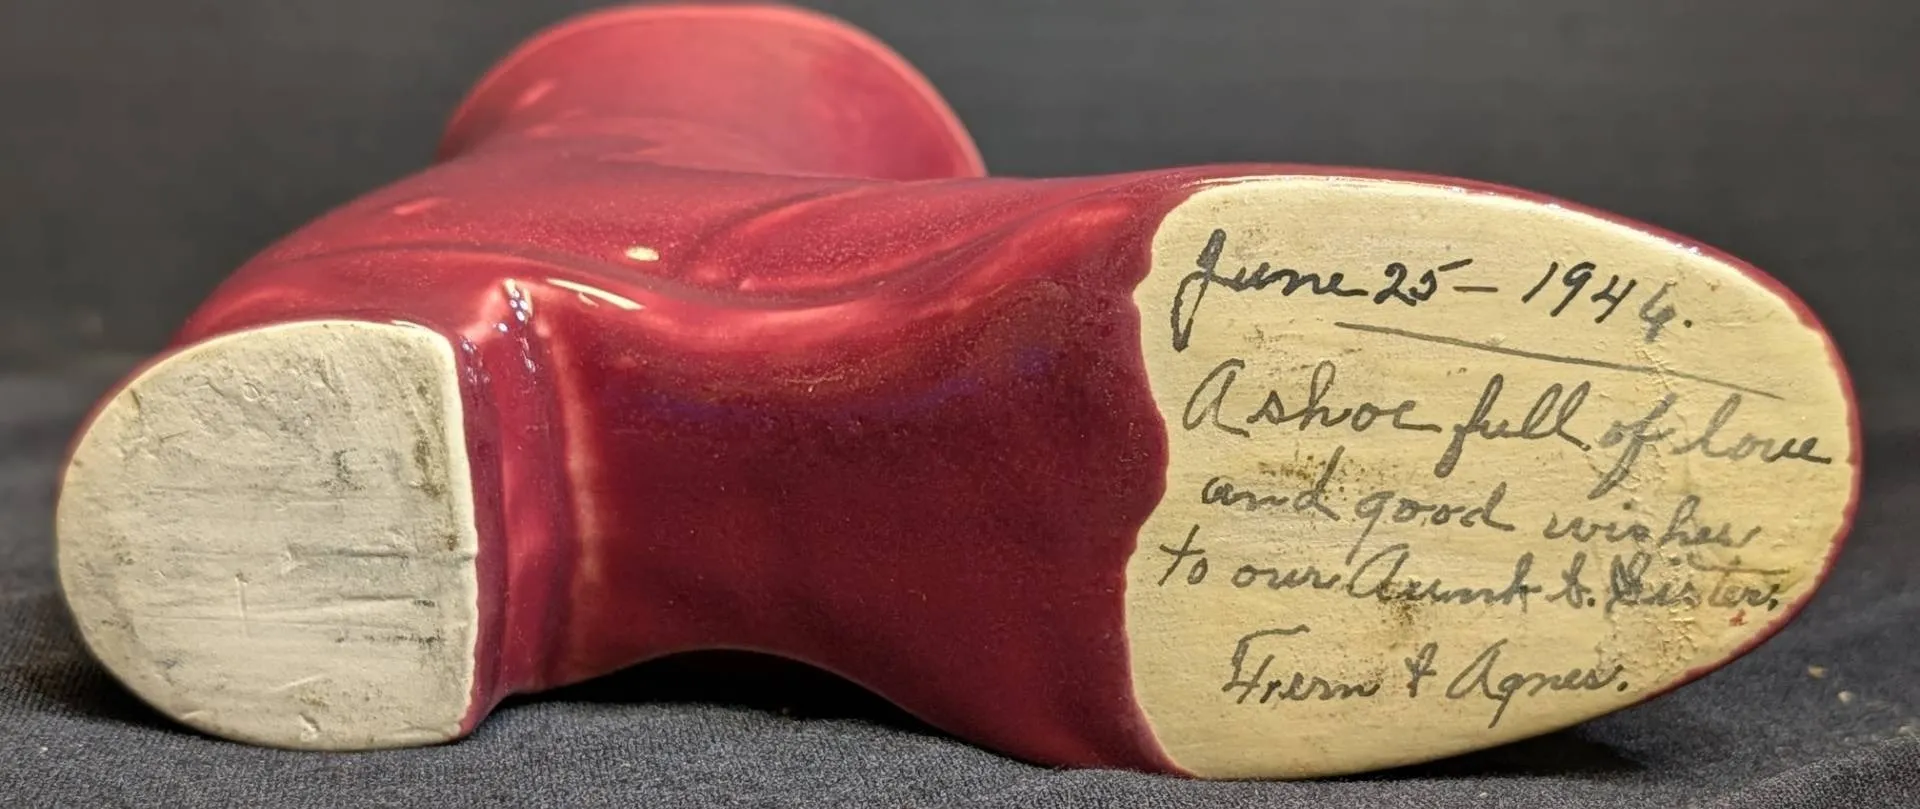 June 25 – 1946.
A shoe full of love
and good wishes
to our Aunt & Sister.
Fern & Agnes.